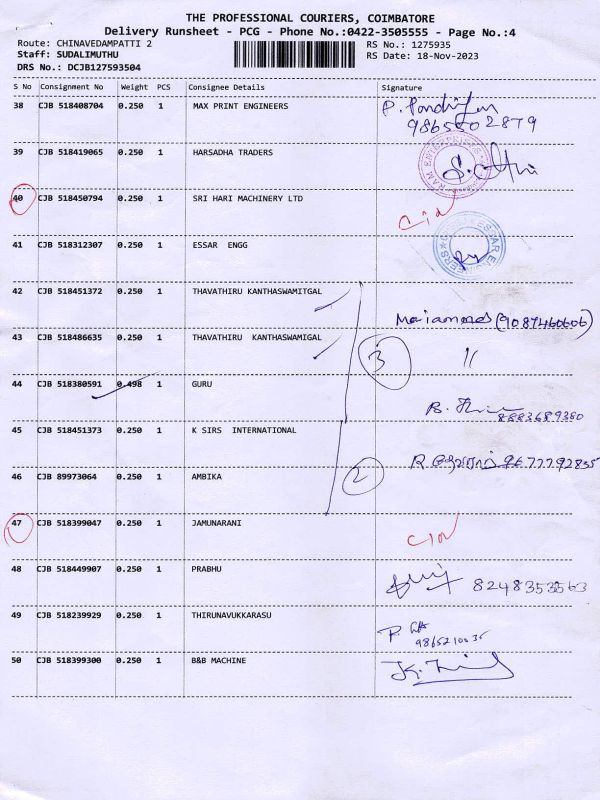 THE PROFESSIONAL COURIERS, COIMBATORE
Delivery Runsheet - PCG - Phone No.:0422-3505555 - Page No.:4
Route: CHINAVEDAMPATTI 2 RS No.: 1275935
Staff: SUDALIMUTHU RS Date: 18-Nov-2023
DRS No.: DCJB127593504
S No Consignment No Weight PCS Consignee Details Signature
38 CJB 518408704 0.250 1 MAX PRINT ENGINEERS
39 CJB 518419065 0.250 1 HARSADHA TRADERS
40 CJB 518450794 0.250 1 SRI HARI MACHINERY LTD
41 CJB 518312307 0.250 1 ESSAR ENGG
42 CJB 518451372 0.250 1 THAVATHIRU KANTHASWAMITGAL (9087460606)
43 CJB 518486635 0.250 1 THAVATHIRU KANTHASWAMIGAL 3 "
44 CJB 518380591 0.498 1 GURU 8883689380
45 CJB 518451373 0.250 1 K SIRS INTERNATIONAL 9677792835
46 CJB 89973064 0.250 1 AMBIKA 2
47 CJB 518399047 0.250 1 JAMUNARANI
48 CJB 518449907 0.250 1 PRABHU 8248353563
49 CJB 518239929 0.250 1 THIRUNAVUKKARASU
50 CJB 518399300 0.250 1 B&B MACHINE